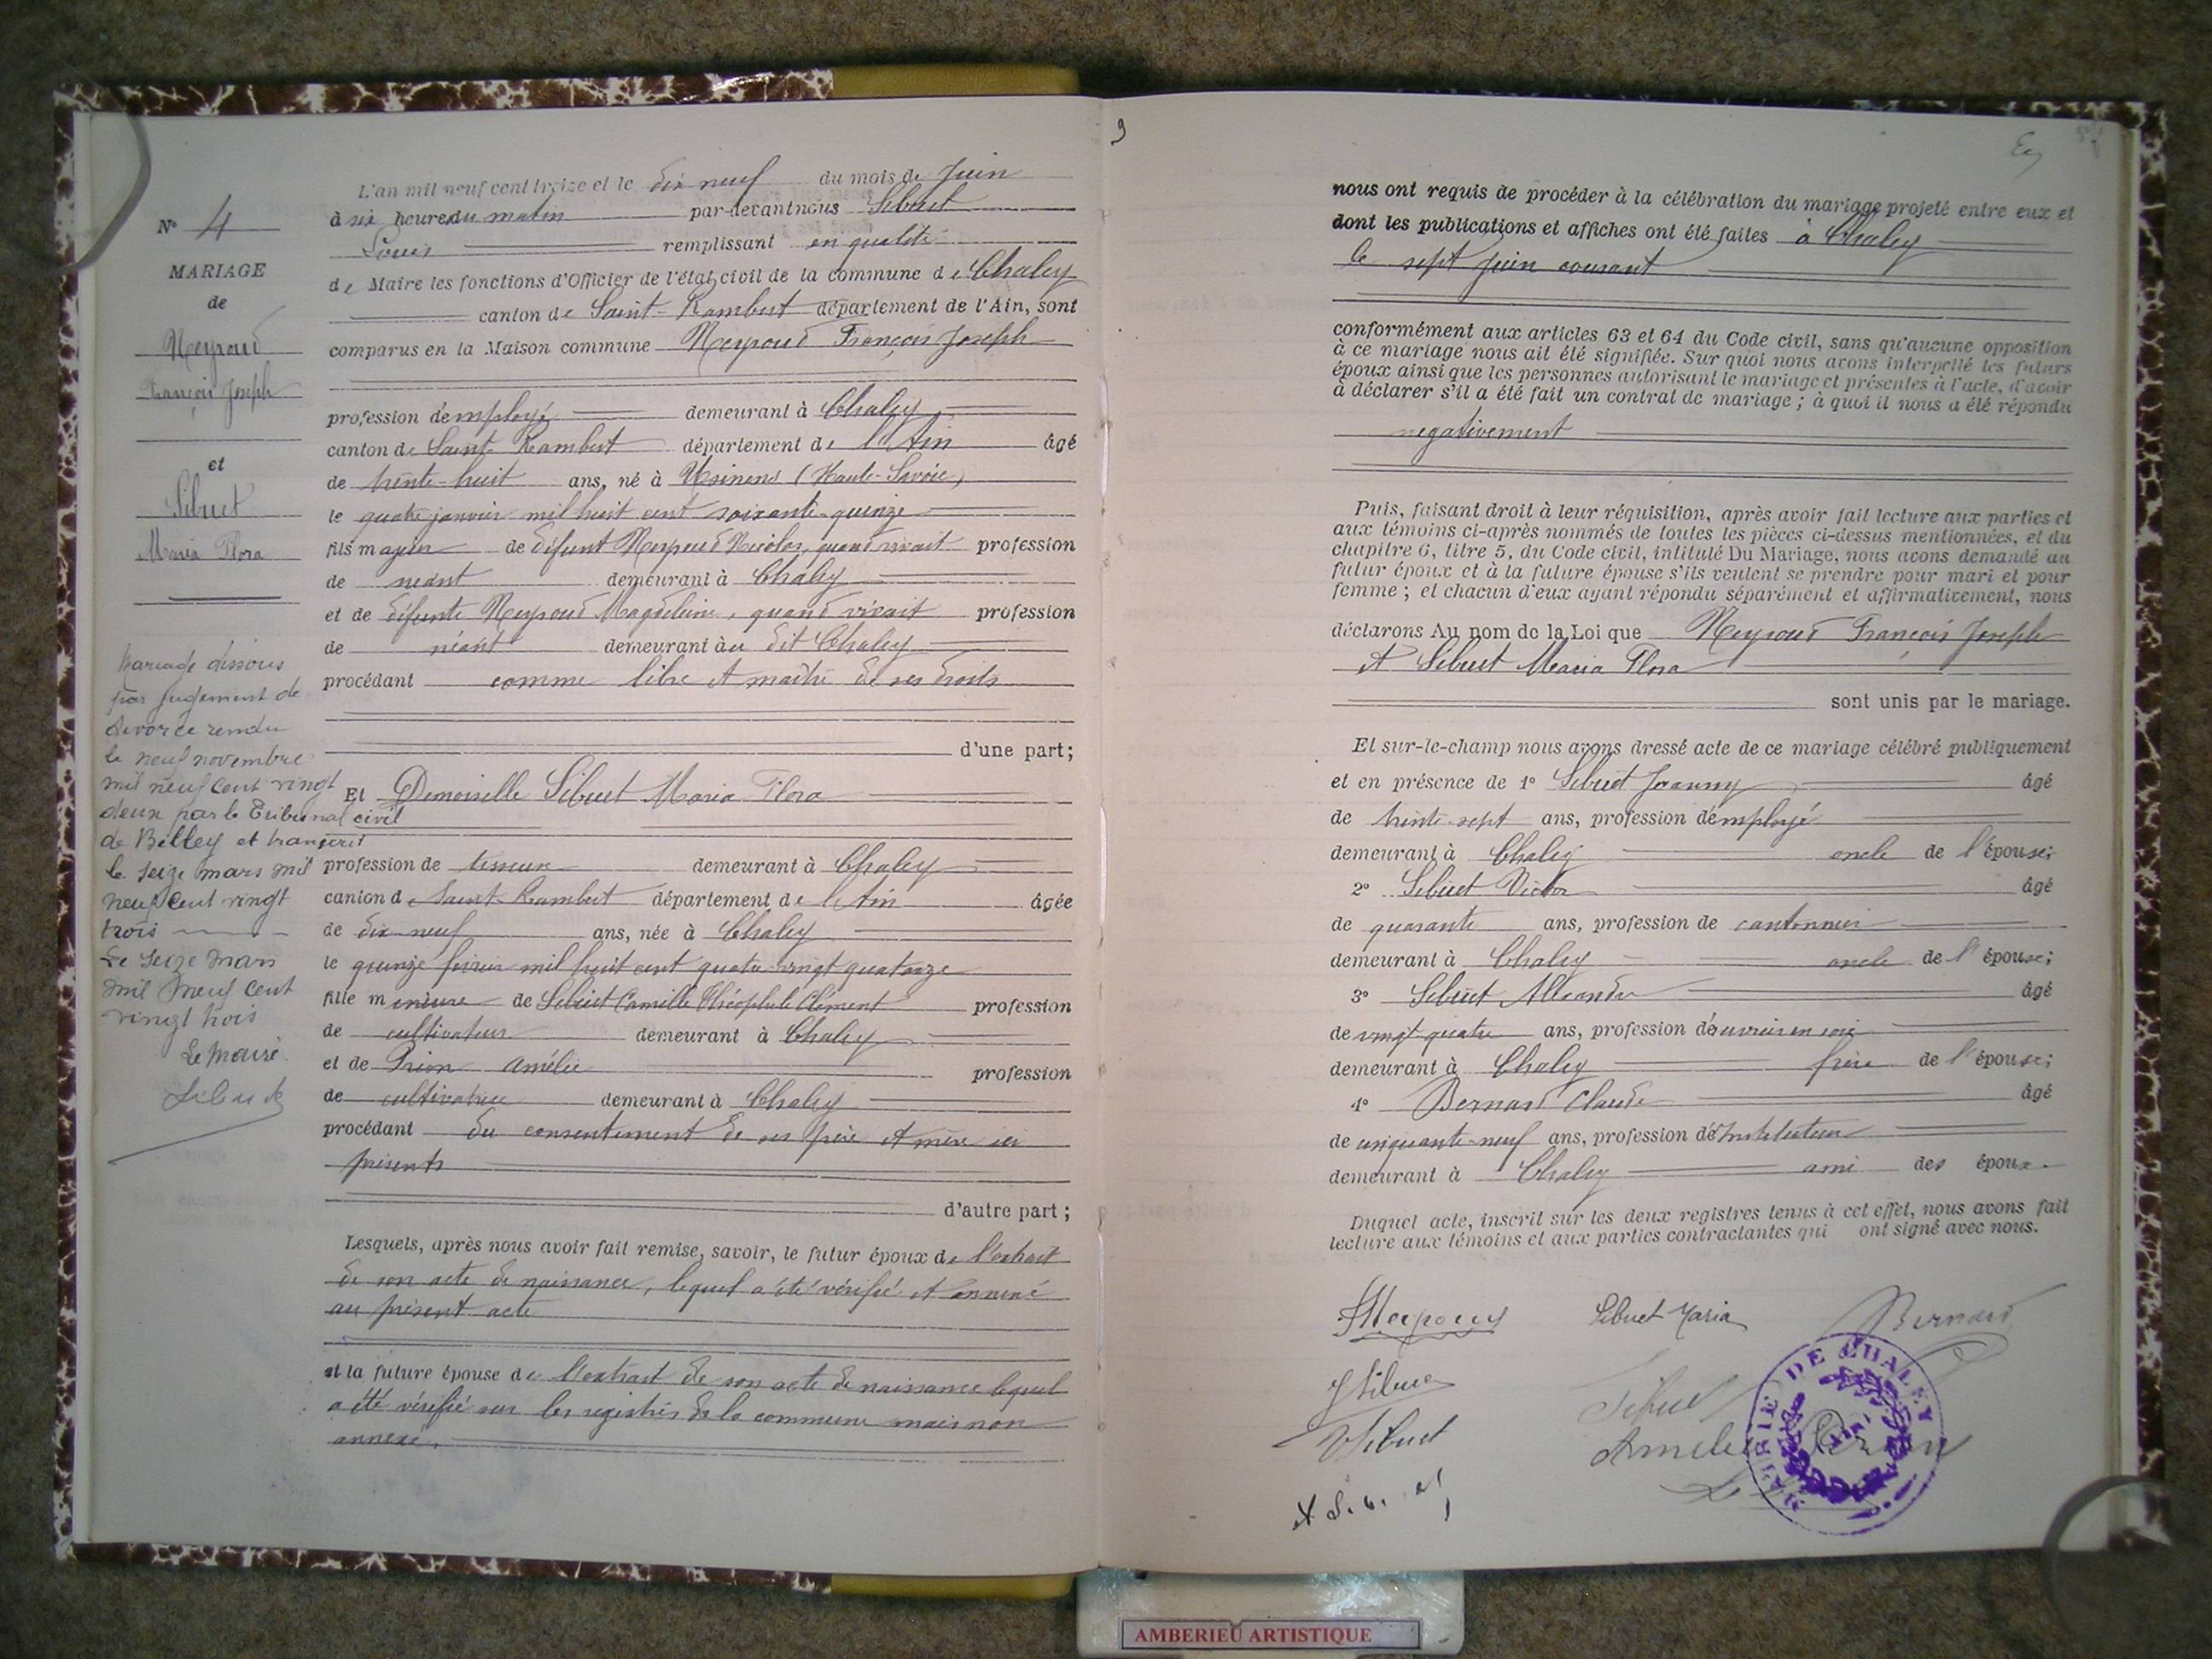 9
N° 4
MARIAGE
de
Neyroud
François Joseph
et
Sibuet
Maria Flora
Mariage dissous
par jugement de
divorce rendu
le neuf novembre
mil neuf cent vingt
deux par le Tribunal civil
de Belley et transcrit
le seize mars mil
neuf cent vingt
trois
Le seize mars
mil neuf cent
vingt trois
Le Maire
Sibuet
L'an mil neuf cent treize et le dix neuf du mois de Juin
à six heures du matin par-devant nous Sibuet
Louis remplissant en qualité
de Maire les fonctions d'Officier de l'état civil de la commune de Chaley
canton de Saint-Rambert département de l'Ain, sont
comparus en la Maison commune Neyroud François Joseph
profession d'employé demeurant à Chaley
canton de Saint-Rambert département de l'Ain âgé
de trente-huit ans, né à Usinens (Haute-Savoie)
le quatre janvier mil huit cent soixante-quinze
fils majeur de défunt Neyroud Nicolas, quand vivait profession
de néant demeurant à Chaley
et de défunte Neyroud Magdeleine, quand vivait profession
de néant demeurant au dit Chaley
procédant comme libre et maître de ses droits
d'une part;
Et Demoiselle Sibuet Maria Flora
profession de tisseuse demeurant à Chaley
canton de Saint-Rambert département de l'Ain âgée
de dix-neuf ans, née à Chaley
le quinze février mil huit cent quatre-vingt quatorze
fille mineure de Sibuet Camille Théophile Clément profession
de cultivateur demeurant à Chaley
et de Prion Amélie profession
de cultivatrice demeurant à Chaley
procédant du consentement de ses père et mère ici
présents
d'autre part;
Lesquels, après nous avoir fait remise, savoir, le futur époux de l'extrait
de son acte de naissance, lequel a été vérifié et annexé
au présent acte
et la future épouse de l'extrait de son acte de naissance lequel
a été vérifié sur les registres de la commune mais non
annexé.
nous ont requis de procéder à la célébration du mariage projeté entre eux et
dont les publications et affiches ont été faites à Chaley
le sept juin courant
conformément aux articles 63 et 64 du Code civil, sans qu'aucune opposition
à ce mariage nous ait été signifiée. Sur quoi nous avons interpellé les futurs
époux ainsi que les personnes autorisant le mariage et présentes à l'acte, d'avoir
à déclarer s'il a été fait un contrat de mariage; à quoi il nous a été répondu
negativement
Puis, faisant droit à leur réquisition, après avoir fait lecture aux parties et
aux témoins ci-après nommés de toutes les pièces ci-dessus mentionnées, et du
chapitre 6, titre 5, du Code civil, intitulé Du Mariage, nous avons demandé au
futur époux et à la future épouse s'ils veulent se prendre pour mari et pour
femme; et chacun d'eux ayant répondu séparément et affirmativement, nous
déclarons Au nom de la Loi que Neyroud François Joseph
et Sibuet Maria Flora
sont unis par le mariage.
Et sur-le-champ nous avons dressé acte de ce mariage célébré publiquement
et en présence de 1° Sibuet Joanny âgé
de trente-sept ans, profession d'employé
demeurant à Chaley oncle de l'épouse;
2° Sibuet Victor âgé
de quarante ans, profession de cantonnier
demeurant à Chaley oncle de l'épouse;
3° Sibuet Alexandre âgé
de vingt-quatre ans, profession d'ouvrier en soie
demeurant à Chaley frère de l'épouse;
4° Bernard Claude âgé
de cinquante-neuf ans, profession d'Instituteur
demeurant à Chaley ami des époux.
Duquel acte, inscrit sur les deux registres tenus à cet effet, nous avons fait
lecture aux témoins et aux parties contractantes qui ont signé avec nous.
FNeyroud Sibuet Maria Bernard
J Sibuet Sibuet
V Sibuet Amelie Prion
MAIRIE DE CHALEY
AMBERIEU ARTISTIQUE